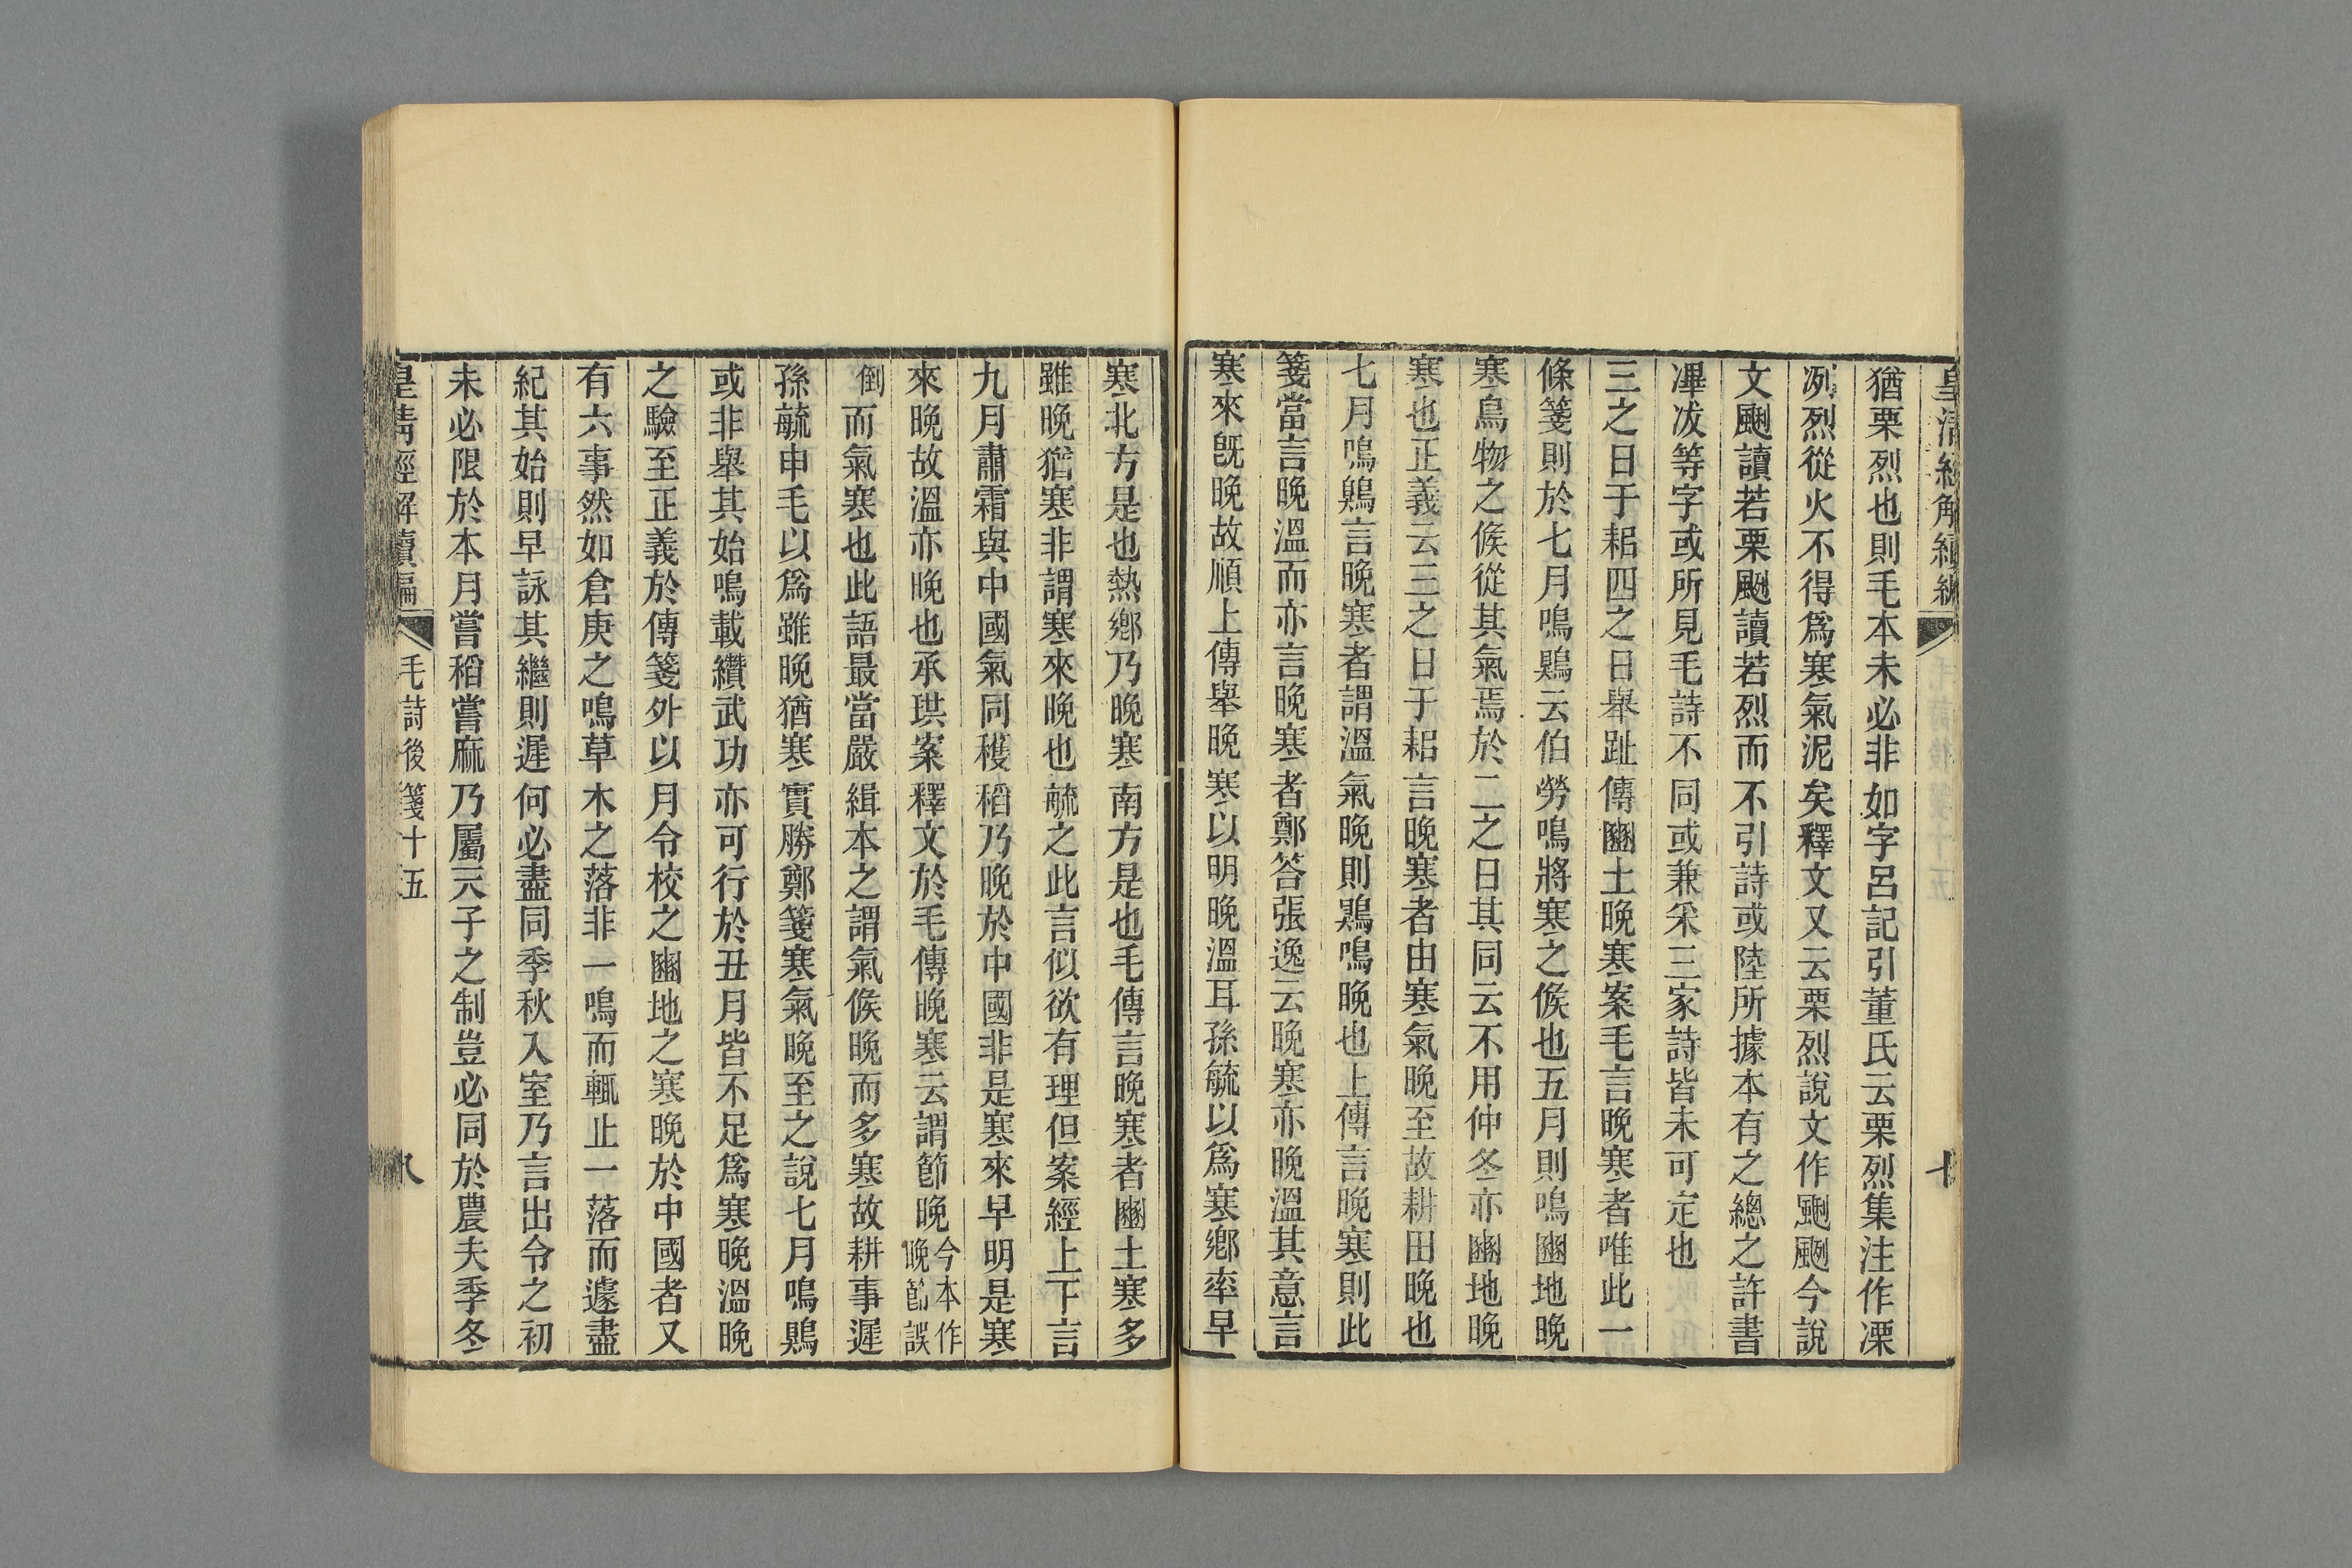 皇清經解續編
猶栗烈也則毛本未必非如字呂記引董氏云栗烈集注作凓
冽烈從火不得爲寒氣泥矣釋文又云栗烈說文作颲颲今說
文颲讀若栗颲讀若烈而不引詩或陸所據本有之總之許書
滭冹等字或所見毛詩不同或兼采三家詩皆未可定也
三之日于耜四之日舉趾傳豳土晚寒案毛言晚寒者唯此一
條箋則於七月鳴鵙云伯勞鳴將寒之候也五月則鳴豳地晚
寒鳥物之候從其氣焉於二之日其同云不用仲冬亦豳地晚
寒也正義云三之日于耜言晚寒者由寒氣晚至故耕田晚也
七月鳴鵙言晚寒者謂溫氣晚則鵙鳴晚也上傳言晚寒則此
箋當言晚溫而亦言晚寒者鄭答張逸云晚寒亦晚溫其意言
寒來旣晚故順上傳舉晚寒以明晚溫耳孫毓以爲寒鄉率早
寒北方是也熱鄉乃晚寒南方是也毛傳言晚寒者豳土寒多
雖晚猶寒非謂寒來晚也毓之此言似欲有理但案經上下言
九月肅霜與中國氣同穫稻乃晚於中國非是寒來早明是寒
來晚故溫亦晚也承珙案釋文於毛傳晚寒云謂節晚今本作晚節誤
倒而氣寒也此語最當嚴緝本之謂氣候晚而多寒故耕事遲
孫毓申毛以爲雖晚猶寒實勝鄭箋寒氣晚至之說七月鳴鵙
或非舉其始鳴載纘武功亦可行於丑月皆不足爲寒晚溫晚
之驗至正義於傳箋外以月令校之豳地之寒晚於中國者又
有六事然如倉庚之鳴草木之落非一鳴而輒止一落而遽盡
紀其始則早詠其繼則遲何必盡同季秋入室乃言出令之初
未必限於本月嘗稻嘗麻乃屬天子之制豈必同於農夫季冬
皇清經解續編 毛詩後箋十五